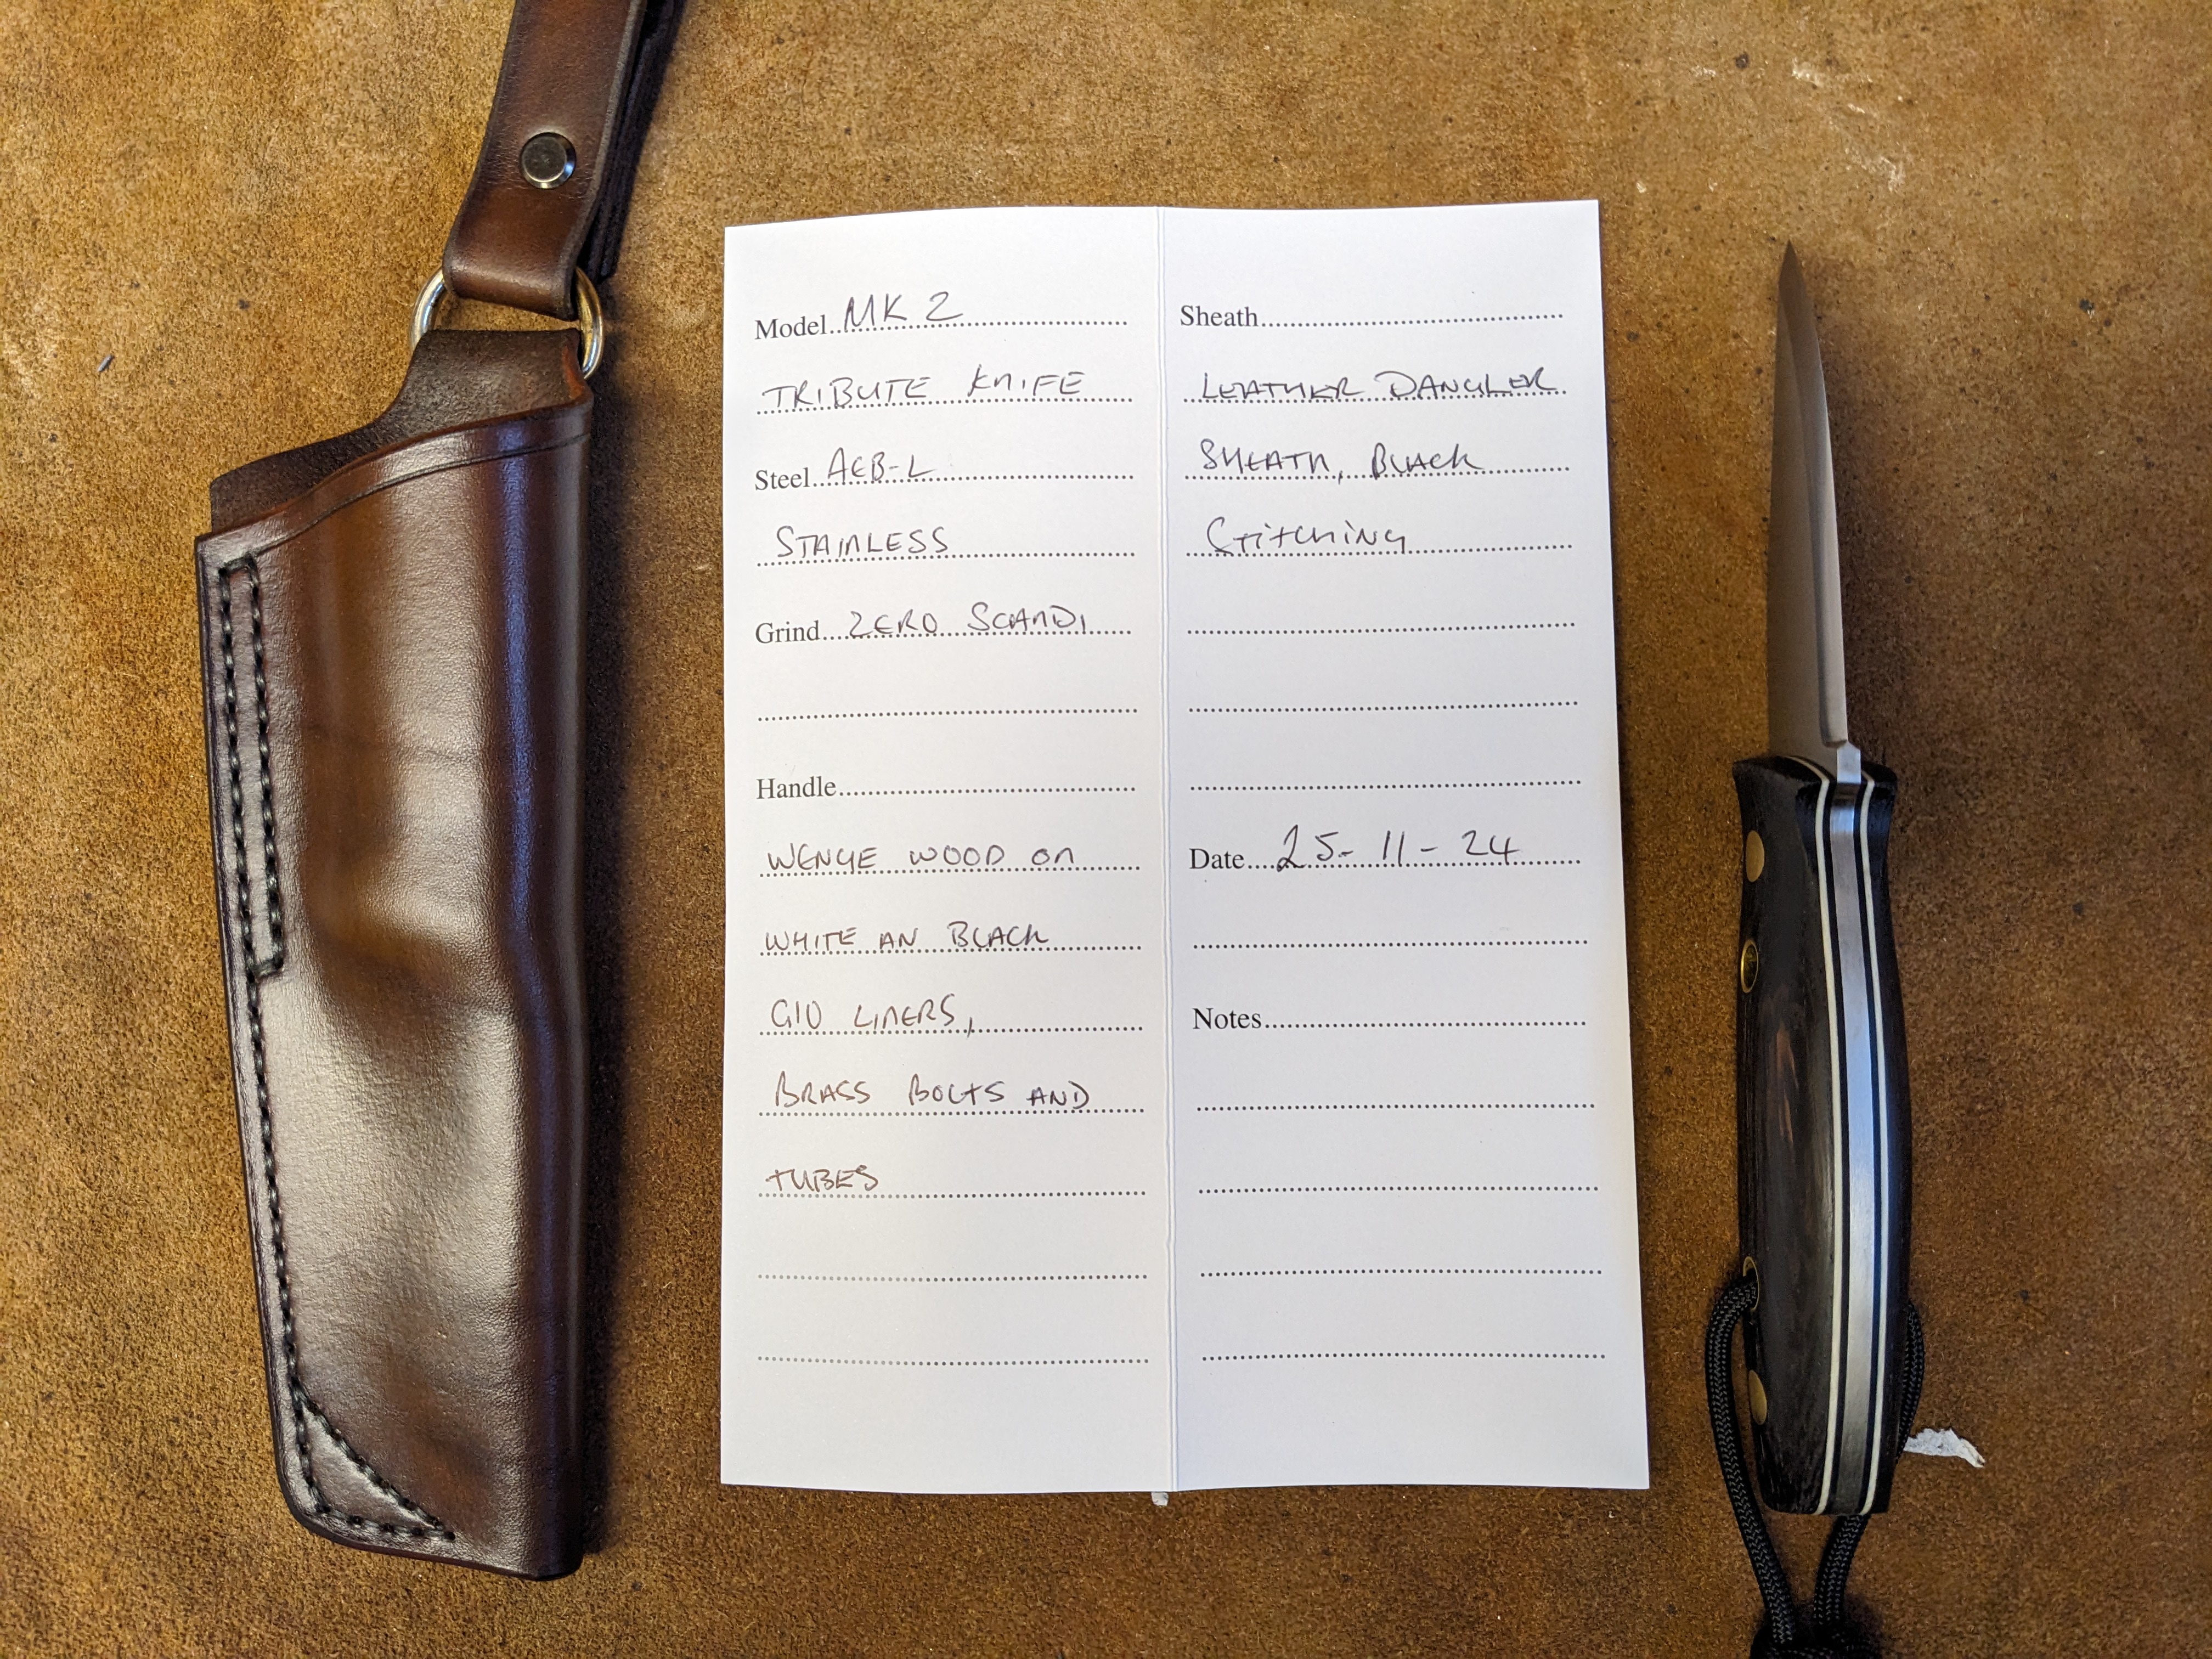 Model MK 2
TRIBUTE KNIFE
Steel AEB-L
STAINLESS
Grind ZERO SCANDI
Handle
WENGE WOOD ON
WHITE AN BLACK
G10 LINERS,
BRASS BOLTS AND
TUBES
Sheath
LEATHER DANGLER
SHEATH, BLACK
Stitching
Date 25-11-24
Notes